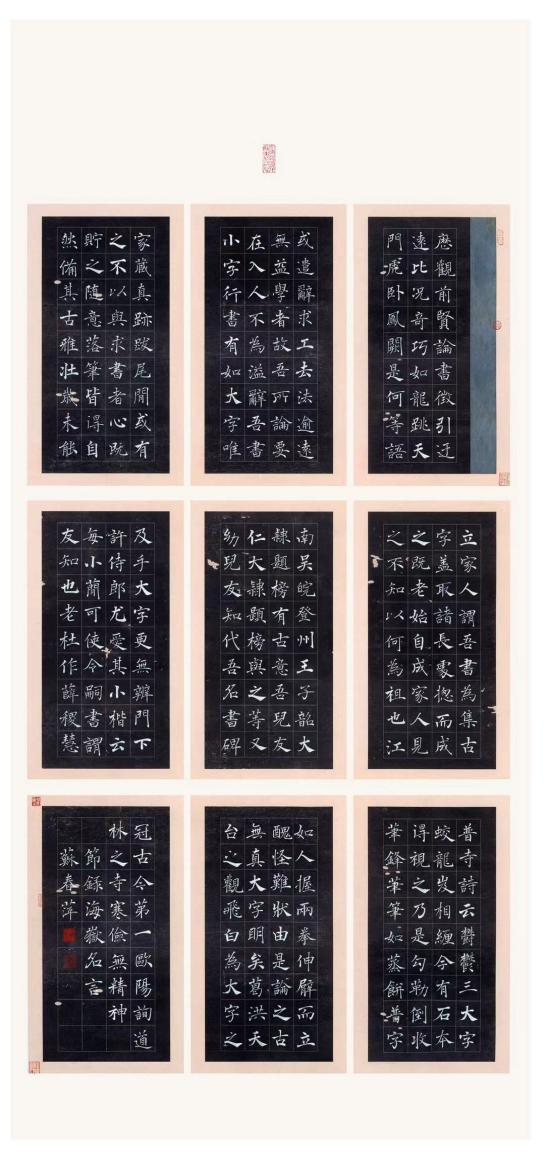 歷觀前賢論書徵引迂
遠比況奇巧如龍跳天
門虎卧鳳闕是何等語
或遣辭求工去法逾遠
無益學者故吾所論要
在入人不為溢辭吾書
小字行書有如大字唯
家藏真跡跋尾間或有
之不以與求書者心既
貯之隨意落筆皆得自
然備其古雅壯歲未能
立家人謂吾書為集古
字蓋取諸長處揔而成
之既老始自成家人見
之不知以何為祖也江
南吳皖登州王子韶大
隸題榜有古意吾兒友
仁大隸題榜與之等又
幼兒友知代吾名書碑
及手大字更無辨門下
許侍郎尤愛其小楷云
每小簡可使令嗣書謂
友知也老杜作薛稷慧
普寺詩云鬱鬱三大字
蛟龍岌相纏今有石本
得視之乃是勾勒倒收
筆鋒筆筆如蒸餅普字
如人握兩拳伸臂而立
醜怪難狀由是論之古
無真大字明矣葛洪天
台之觀飛白為大字之
冠古今第一歐陽詢道
林之寺寒儉無精神
節錄海嶽名言
蘇春萍